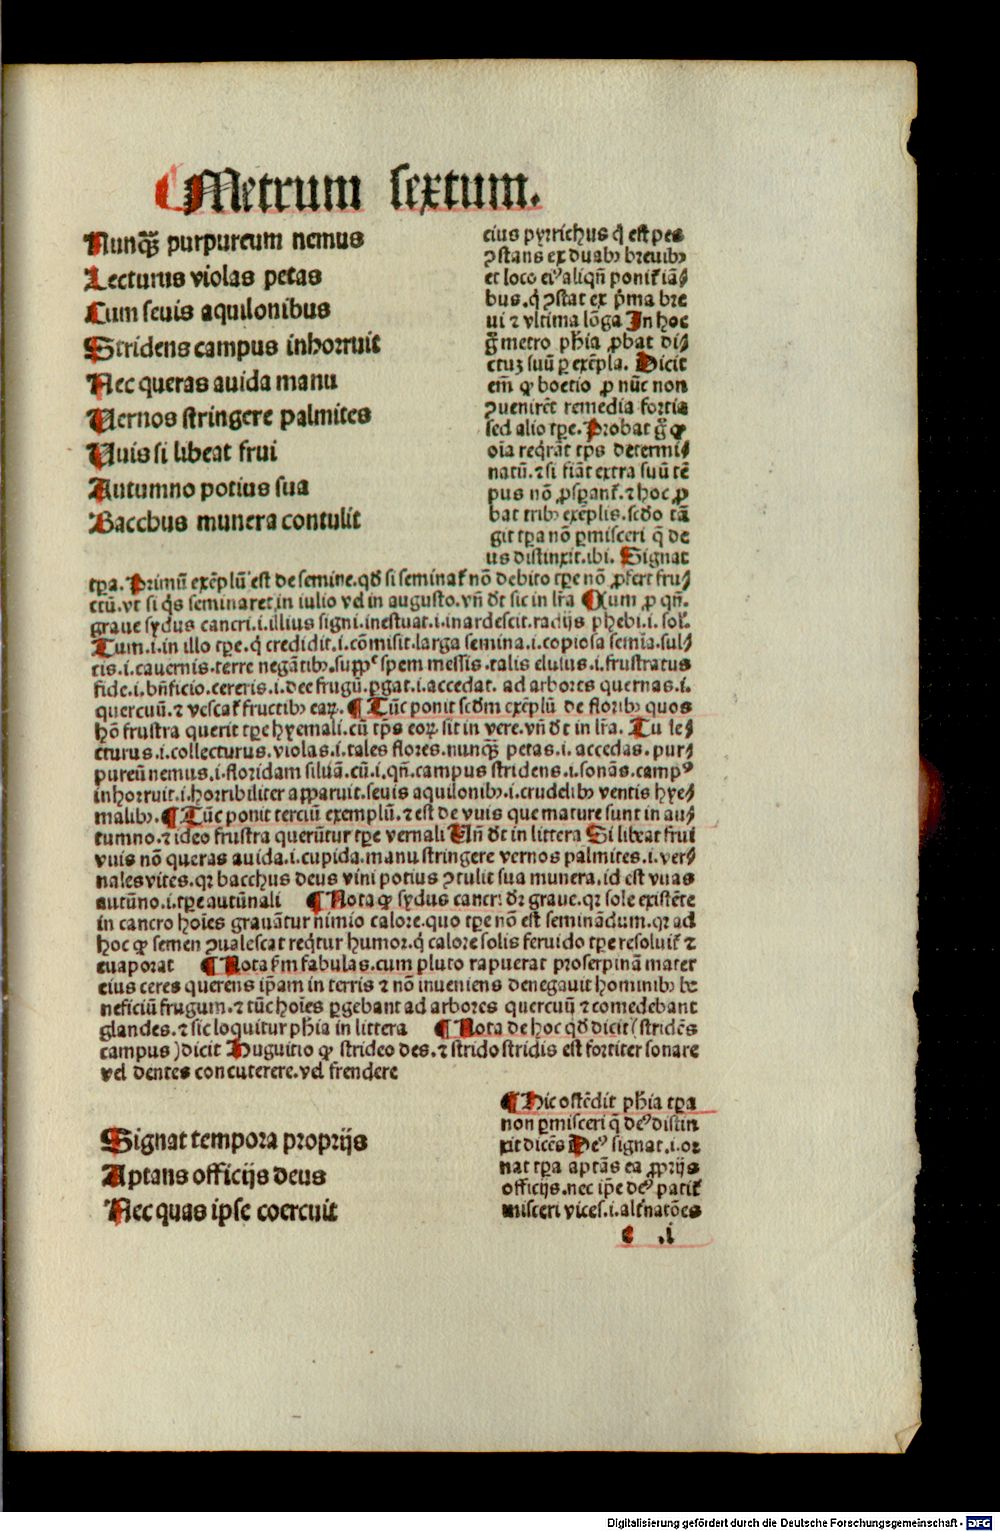 Metrum sextum.
Nunqȝ purpureum nemus
Lecturus violas petas
Cum seuis aquilonibus
Stridens campus inhorruit
Nec queras auida manu
Vernos stringere palmites
Vuis si libeat frui
Autumno potius sua
Bacchus munera contulit
eius pyrrichus q̄ est pes
ꝯstans ex duabꝰ breuibꝰ
et loco eiꝰ aliqn̄ ponit̄ iā⸗
bus.q̄ ꝯstat ex p̄ma bre
ui ⁊ vltima lōga In hoc
g̊ metro ph̄ia ꝓbat di⸗
ctuȝ suū ꝑ exēpla. Dicit
em̄ ꝙ boetio ꝓ nūc non
ꝯuenirēt remedia fortia
sed alio tꝑe. Probat g̊ ꝙ
oīa reqͥrāt tꝑs determi⸗
natū.⁊ si fiāt extra suū tē
pus nō ꝓsꝑant̄.⁊ hoc ꝓ
bat tribꝰ exēplis.scd̄o tā
git tꝑa nō ꝑmisceri q̄ de
us distinxit.ibi. Signat
tꝑa. Primū exēplū est de semine.qd̄ si seminat̄ nō debito tꝑe nō ꝓfert fru⸗
ctū.vt si qͥs seminaret in iulio vel in augusto.vn̄ dt̄ sic in lr̄a ¶ Cum ꝓ qn̄.
graue sydus cancri.i.illius signi.inestuat.i.inardescit.radijs phebi.i.sol̄.
Tum.i.in illo tꝑe.qͥ credidit.i.cōmisit.larga semina.i.copiosa semīa.sul⸗
cis.i.cauernis.terre negātibꝰ.supple spem messis.talis elusus.i.frustratus
fide.i.bn̄ficio.cereris.i.dee frugū.ꝑgat.i.accedat. ad arbores quernas.i.
quercuū.⁊ vescat̄ fructibꝰ eaꝝ. ¶ Tūc ponit scd̄m exēplū de floribꝰ quos
hō frustra querit tꝑe hyemali.cū tꝑs eoꝝ sit in vere.vn̄ dt̄ in lr̄a. Tu le⸗
cturus.i.collecturus.violas.i.tales flores.nunqȝ petas.i. accedas.pur⸗
pureū nemus.i.floridam siluā.cū.i.qn̄.campus stridens.i.sonās.campꝰ
inhorruit.i.horribiliter apparuit.seuis aquilonibꝰ.i.crudelibꝰ ventis hye⸗
malibꝰ. ¶ Tūc ponit terciū exemplū.⁊ est de vuis que mature sunt in au⸗
tumno.⁊ ideo frustra querūtur tꝑe vernali Vn̄ dt̄ in littera Si libeat frui
vuis nō queras auida.i.cupida.manu stringere vernos palmites.i.ver⸗
nales vites.qꝛ bacchus deus vini potius ꝯtulit sua munera.id est vuas
autūno.i.tꝑe autūnali ¶ Nota ꝙ sydus cancri dꝛ graue.qꝛ sole existēte
in cancro hoīes grauātur nimio calore.quo tꝑe nō est seminādum.qꝛ ad
hoc ꝙ semen ꝯualescat reqͥrtur humor.qͥ calore solis feruido tꝑe resoluit̄ ⁊
euaporat ¶ Nota ẜm fabulas.cum pluto rapuerat proserpinā mater
eius ceres querens ip̄am in terris ⁊ nō inueniens denegauit hominibꝰ be
neficiū frugum.⁊ tūc hoīes ꝑgebant ad arbores quercuū ⁊ comedebant
glandes.⁊ sic loquitur ph̄ia in littera ¶ Nota de hoc qd̄ dicit (stridēs
campus) dicit Huguitio ꝙ strideo des.⁊ strido stridis est fortiter sonare
vel dentes concuterere.vel frendere
Signat tempora proprijs
Aptans officijs deus
Nec quas ipse coercuit
¶ Hic ostēdit ph̄ia tꝑa
non ꝑmisceri q̄ deꝰ distin
xit dicēs Deꝰ signat.i.or
nat tꝑa aptās ea ꝓprijs
officijs.nec ip̄e deꝰ patit̄
misceri vices.i.alt̄natōes
e .i
Digitalisierung gefördert durch die Deutsche Forschungsgemeinschaft - DFG